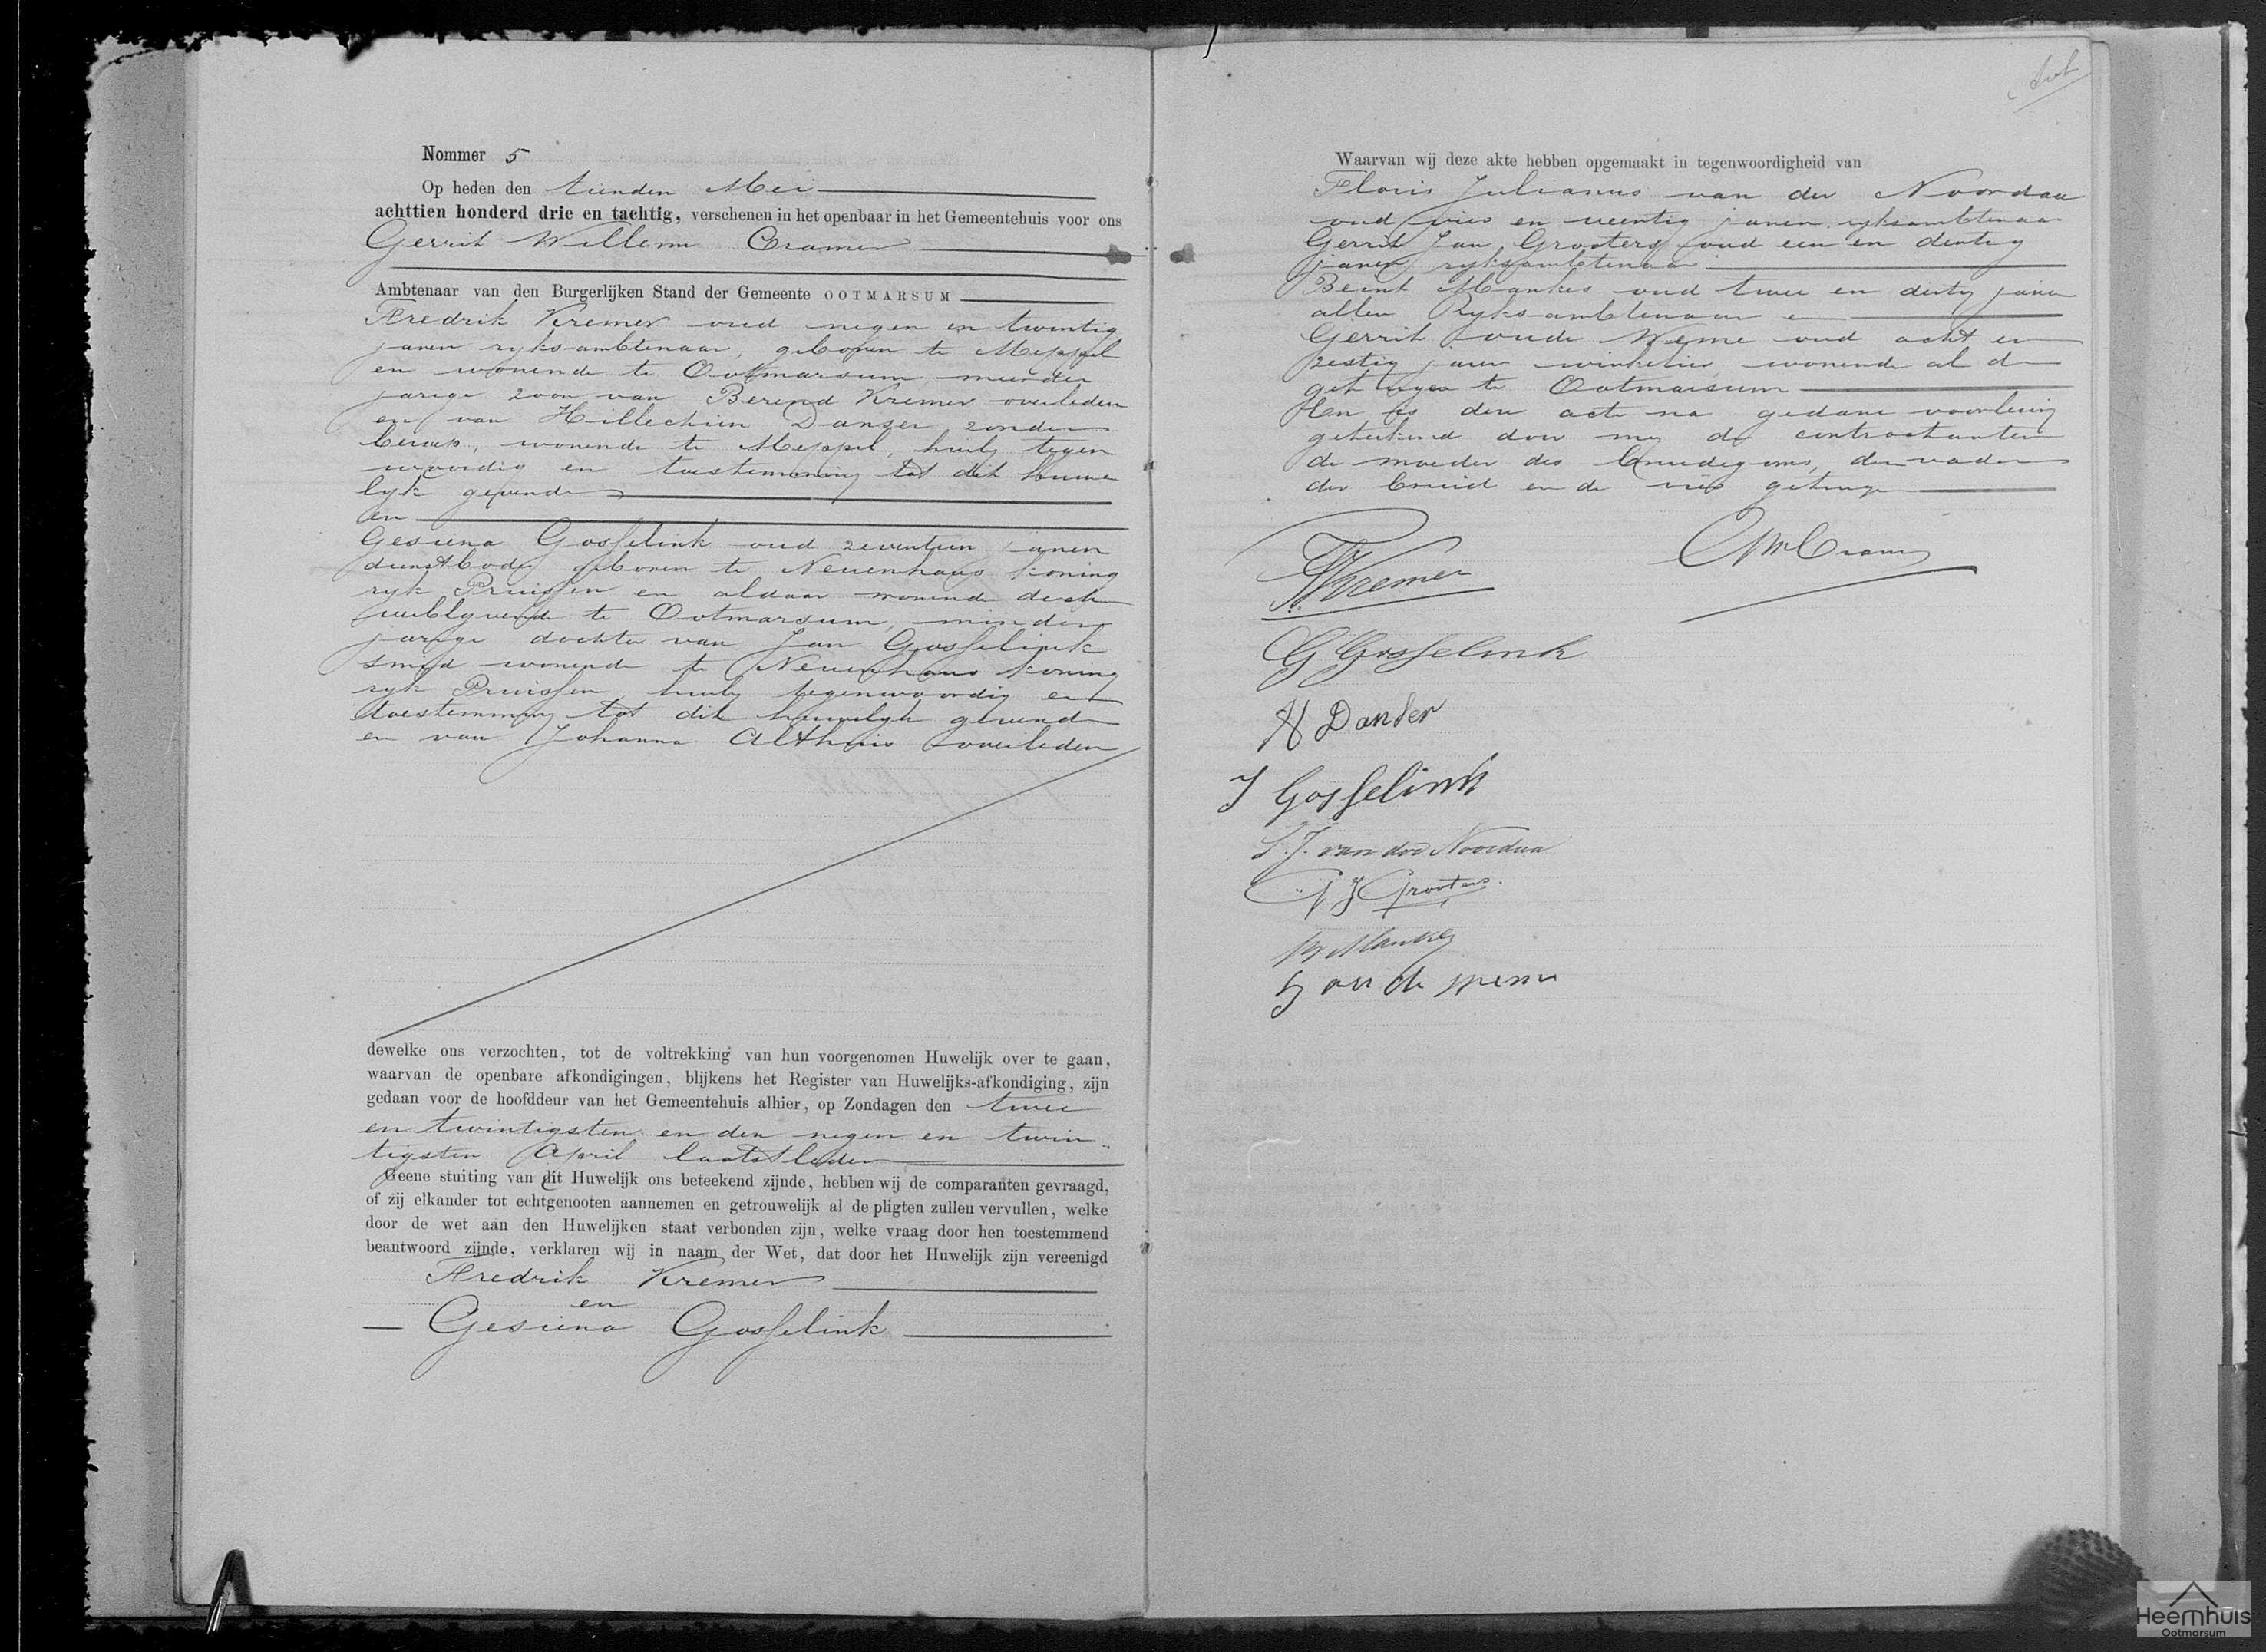 Nommer 5
Op heden den tienden Mei
achttien honderd drie en tachtig, verschenen in het openbaar in het Gemeentehuis voor ons
Gerrit Willem Cramer
Ambtenaar van den Burgerlijken Stand der Gemeente OOTMARSUM
Fredrik Kremer oud negen en twintig
jaren ryksambtenaar, geboren te Meppel
en wonende te Ootmarsum meerder
jarige zoon van Berend Kremer overleden
en van Hillechien Danser zonder
beroep, wonende te Meppel, hierby tegen
woordig en toestemming tot dit huwe
lyk gevende
en
Gesiena Gosselink oud zeventien jaren
dienstbode geboren te Neuenhaus Koning
ryk Pruissen en aldaar wonende doch
verblyvende te Ootmarsum, minder
jarige dochter van Jan Gosselink
smid wonende te Neuenhaus Koning
ryk Pruissen hierby tegenwoordig en
toestemming tot dit huwelyk gevende
en van Johanna Althuis overleden
dewelke ons verzochten, tot de voltrekking van hun voorgenomen Huwelijk over te gaan,
waarvan de openbare afkondigingen, blijkens het Register van Huwelijks-afkondiging, zijn
gedaan voor de hoofddeur van het Gemeentehuis alhier, op Zondagen den twee
en twintigsten en den negen en twin
tigsten April laatstleden
Geene stuiting van dit Huwelijk ons beteekend zijnde, hebben wij de comparanten gevraagd,
of zij elkander tot echtgenooten aannemen en getrouwelijk al de pligten zullen vervullen, welke
door de wet aan den Huwelijken staat verbonden zijn, welke vraag door hen toestemmend
beantwoord zijnde, verklaren wij in naam der Wet, dat door het Huwelijk zijn vereenigd
Fredrik Kremer
en
Gesiena Gosselink
Waarvan wij deze akte hebben opgemaakt in tegenwoordigheid van
Floris Julianus van der Noordaa
oud vier en jaren ryksambtenaar
Gerrit Jan Grooters oud een en dertig
jaren ryksambtenaar
Berent Mankes oud twee en dertig jaren
allen Ryksambtenaar en
Gerrit oude Weme oud acht en
zestig jaren winkelier, wonende al de
getuigen te Ootmarsum
En is deze acte na gedane voorlezing
geteekend door my de contractanten
de moeder des bruidegoms, den vader
der bruid en de vier getuigen
F Kremer
GW Cramer
G Gosselink
H Danser
J Gosselink
F. J. van der Noordaa
G J Grooters.
B Mankes
G oude weme
Heemhuis
Ootmarsum